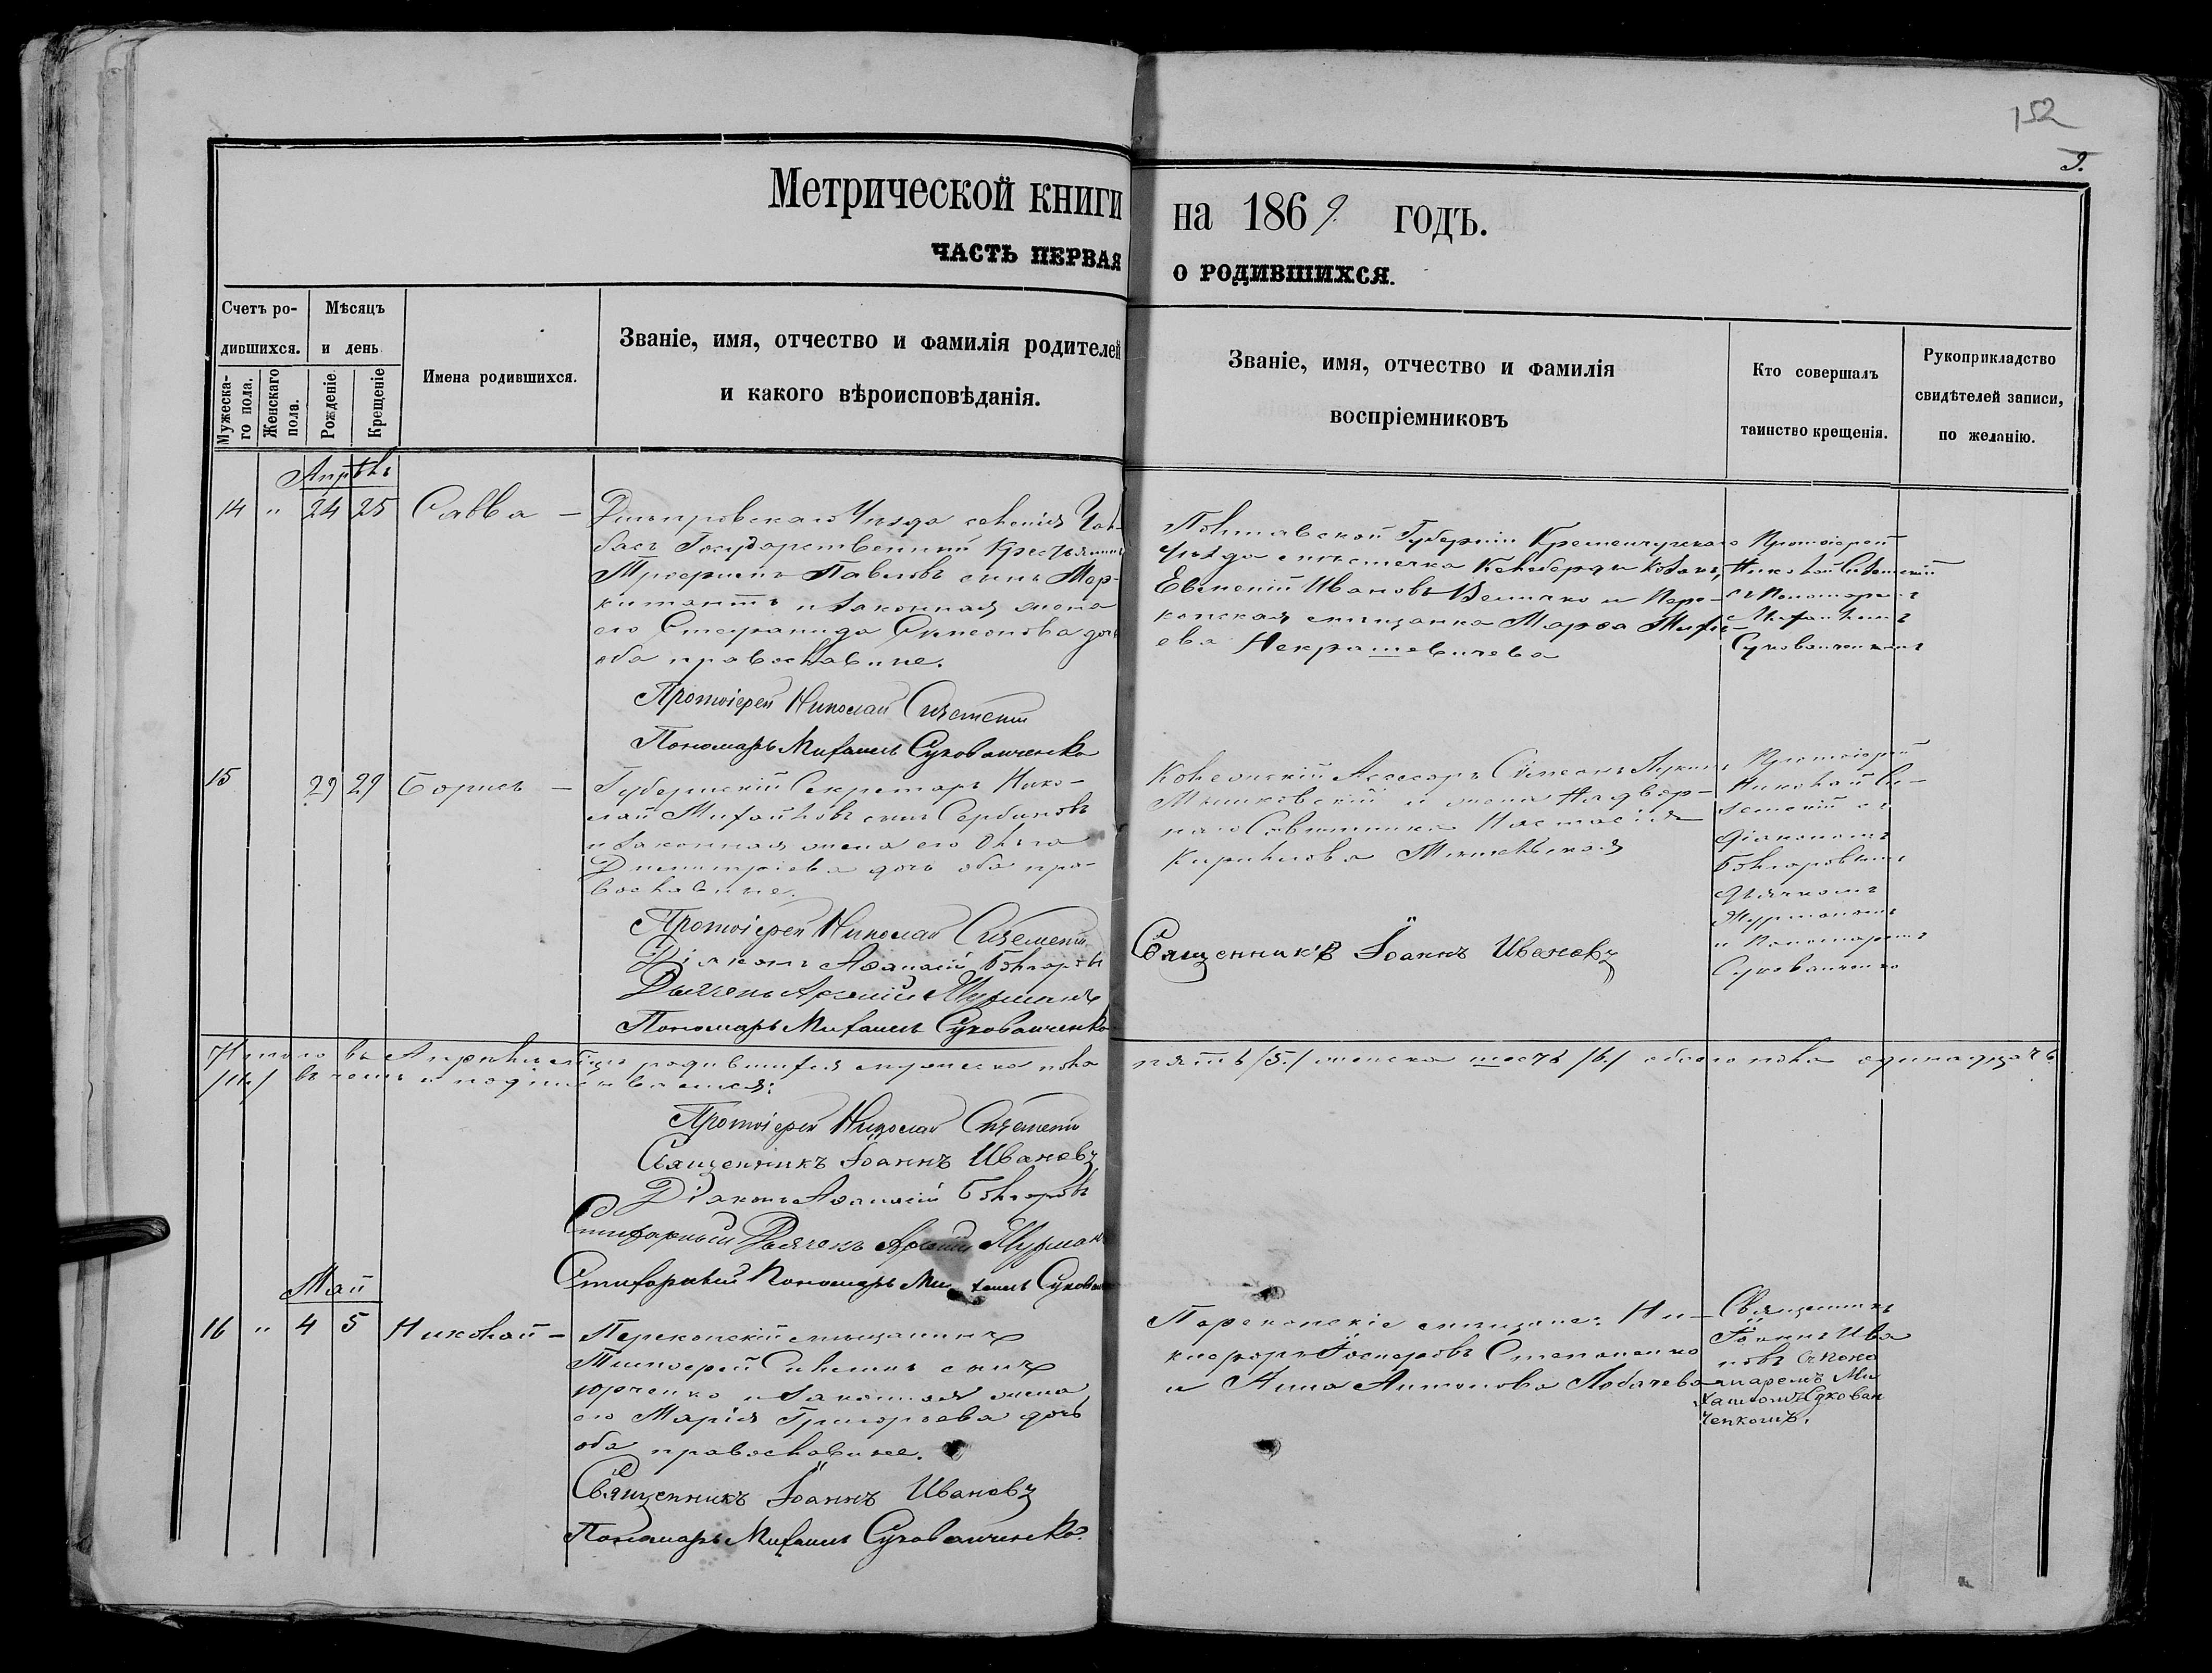 152
9.
Метрической книги на 1869 годъ.
ЧАСТЬ ПЕРВАЯ О РОДИВШИХСЯ.
Счетъ ро-
дившихся.
Мужеска-
го пола.
Женскаго
пола.
Мѣсяцъ
и день
Рожденіе.
Крещеніе
Имена родившихся.
Званіе, имя, отчество и фамилія родителей
и какого вѣроисповѣданія.
Званіе, имя, отчество и фамилія
воспріемниковъ
Кто совершалъ
таинство крещенія.
Рукоприкладство
свидѣтелей записи,
по желанію.
Апрѣль
14 " 24 25 Савва —
Днѣпровскаго Уѣзда селенія Чал-
басъ Государственный Крестьянинъ
Павловъ сынъ
и законная жена
его Стефанида Симеонова дочь
оба православные.
Протоіерей Николай
Пономарь Михаилъ Сухованченко
Полтавской Губерніи Кременчугскаго
Уѣзда мѣстечка Келеберды Козакъ
Евмений Ивановъ Величко и Пере-
копская мѣщанка Марѳа
ева Некрашевичева
Протоіерей
Николай
съ Пономаремъ
Михаиломъ
Сухованченкомъ
15 29 29 Борисъ —
Губернскій Секретарь Нико-
лай Михайловъ сынъ Сербиновъ
и законная жена его Ольга
Димитріева дочь оба пра-
вославные.
Протоіерей Николай
Діаконъ Аѳанасій Болгаровъ
Дьячекъ Арсеній
Пономарь Михаилъ Сухованченко
Колежскій Ассесоръ Симеонъ
и жена Надвор-
наго Совѣтника Настасія
Кирилова
Священникъ Іоаннъ Ивановъ
Протоіерей
Николай
съ
Діакономъ
Болгаровымъ
Дьячкомъ
и Пономаремъ
Сухованченко
Итого въ Апрѣлѣ мѣсяцѣ родившихся мужеска пола пять /5./ женска шесть /6./ обоего пола одинадцать
/11./ въ чемъ и подписываемся:
Протоіерей Николай
Священникъ Іоаннъ Ивановъ
Діаконъ Аѳанасій Болгаровъ
Стихарный Дьячекъ Арсеній
Стихарный Пономарь Михаилъ
Май
16 " 4 5 Николай —
Перекопскій мѣщанинъ
Тимоѳей сынъ
Юрченко и законная жена
его Марія Григорьева дочь
оба православные.
Священникъ Іоаннъ Ивановъ
Пономарь Михаилъ Сухованченко.
Перекопскіе мѣщане: Ни-
кифоръ Степаненко
и Анна Антонова Лобачева
Священникъ
Іоаннъ Ива
новъ съ Поно
маремъ Ми
хаиломъ Сухован
ченкомъ.